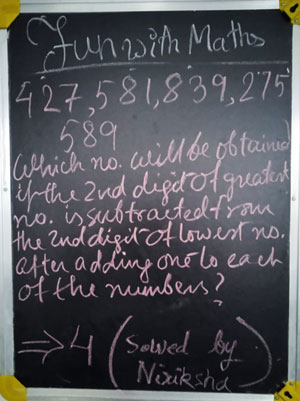 Fun with Maths
427,581,839,275
589
Which no. will be obtained
if the 2nd digit of greatest
no. is subtracted from
the 2nd digit of lowest no.
after adding one to each
of the numbers?
⇒ 4 (Solved by
Nixiksha)